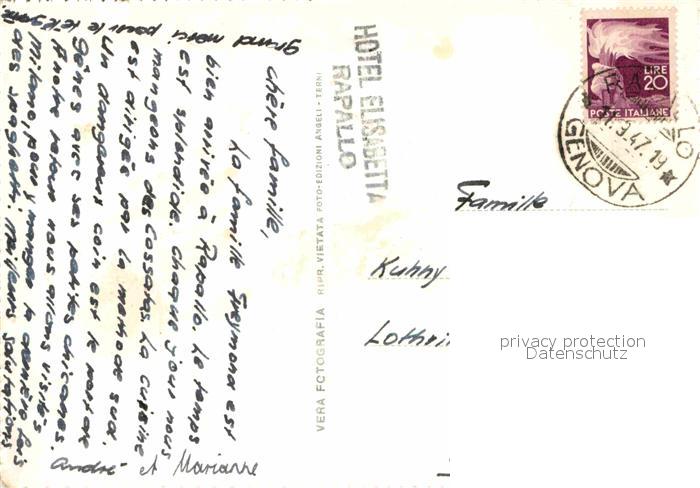 Chère famille,
La famille Freymond est
bien arrivée à Rapallo. Le temps
est splendide. Chaque jour nous
mangeons des La cuisine
est dirigée par la
Un dangereux coin est le
Gênes avec ses petites chicanes.
A notre retour nous allons visiter
Milano, pour y manger la dernière fois
des spaghetti. Meilleures salutations
André et Marianne
grand merci pour le télégramme
VERA FOTOGRAFIA RIPR. VIETATA FOTO-EDIZIONI ANGELI - TERNI
HOTEL ELISABETTA
RAPALLO
LIRE
20
POSTE ITALIANE
RAPALLO
9.47.19
GENOVA
Famille
Kuhny
Lothri
privacy protection
Datenschutz